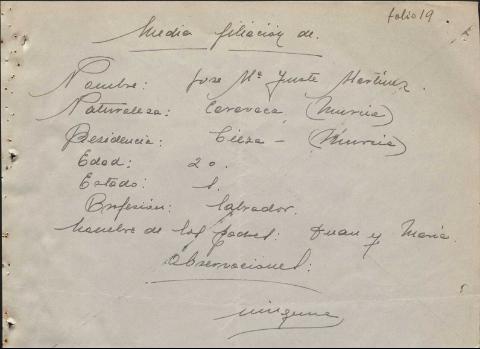 folio 19
Media filiación de.
Nombre: Jose Mª Juste Martinez.
Naturaleza: Caravaca (Murcia)
Residencia: Cieza - (Murcia)
Edad: 20.
Estado: S.
Profesión: Labrador.
Nombre de los padres: Juan y María.
Observaciones:
ninguna